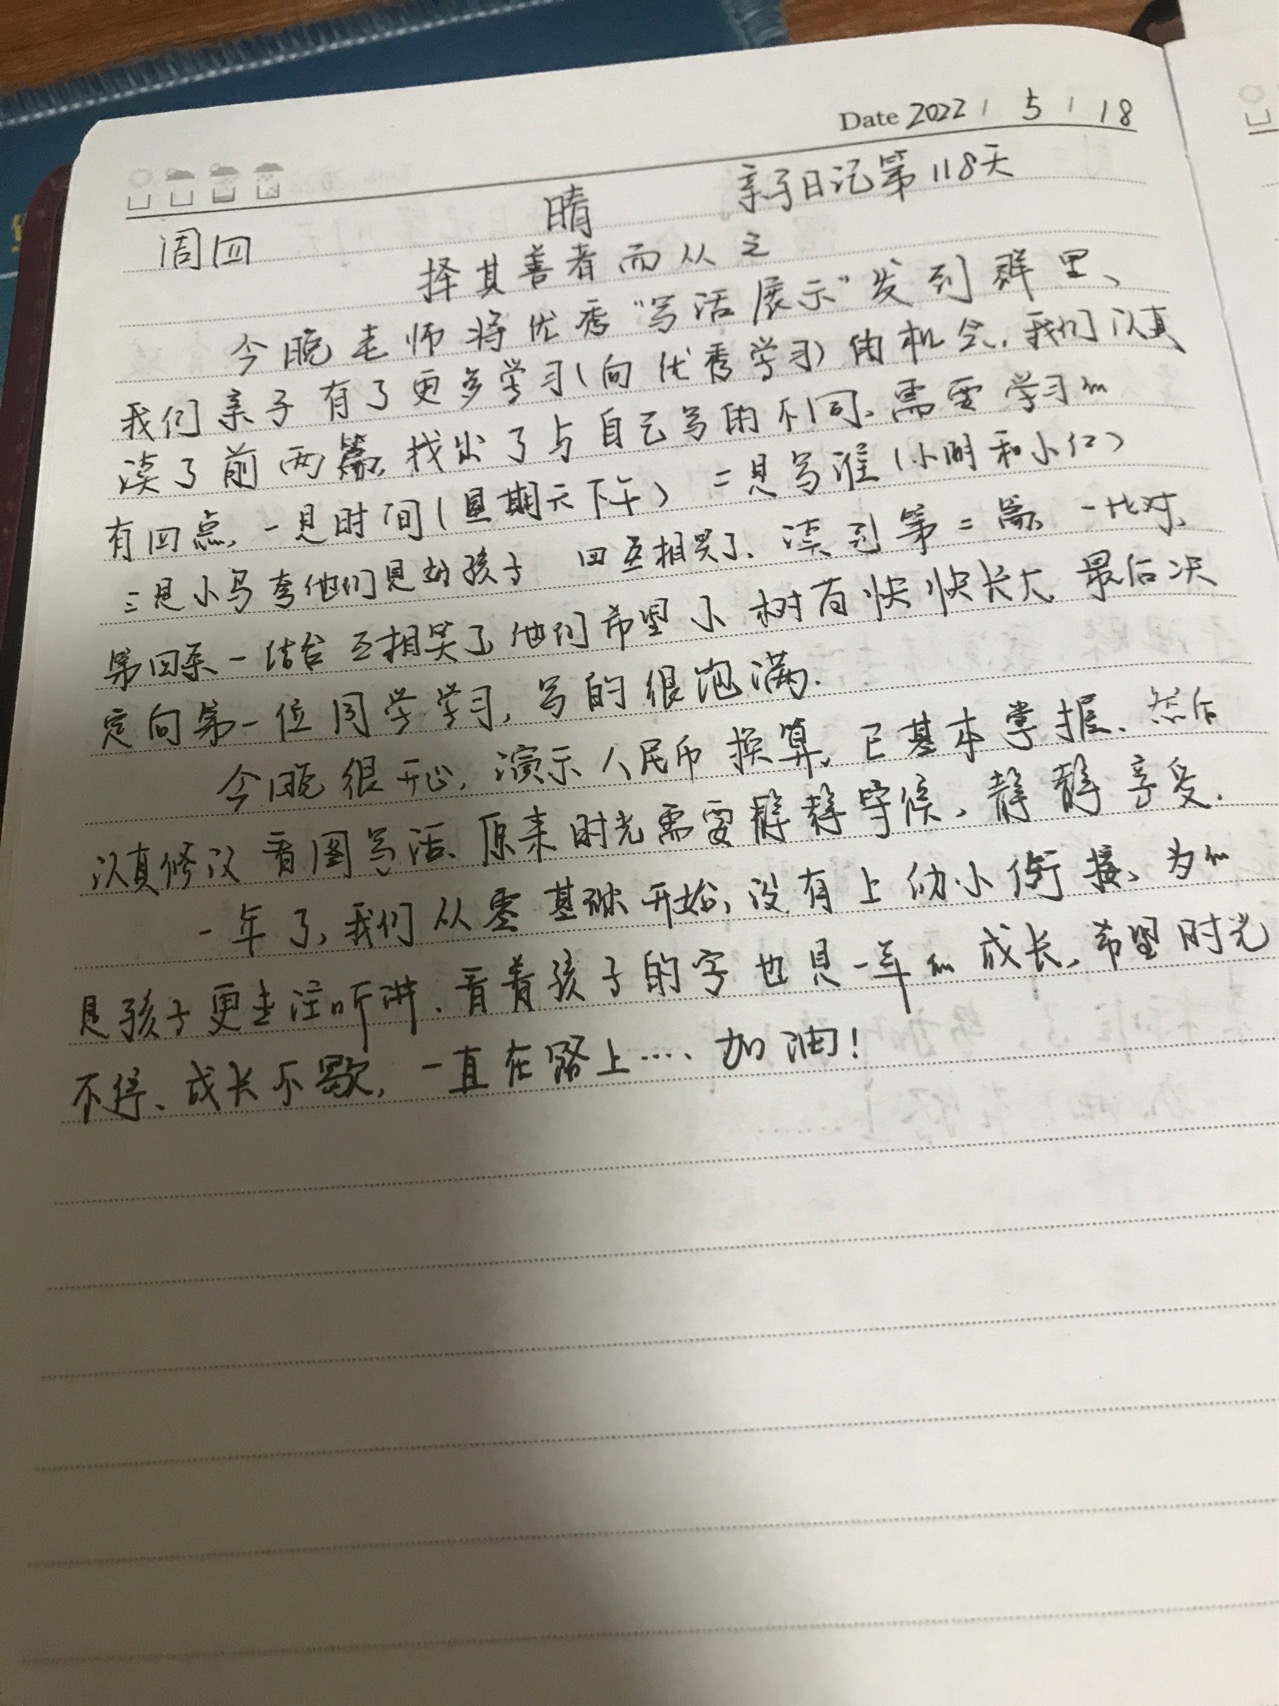 Date 2022 / 5 / 18
周四 晴 亲子日记第118天
择其善者而从之
今晚老师将优秀“写话展示”发到群里、
我们亲子有了更多学习(向优秀学习)的机会,我们认真
读了前两篇,找出了与自己写的不同、需要学习的
有四点、一是时间(星期天下午) 二是写谁(小明和小红)
三是小鸟夸他们是好孩子 四互相笑了、读到第二篇 一比对、
第四条一结合 互相笑了他们希望小树苗快快长大 最后决
定向第一位同学学习,写的很饱满.
今晚很开心,演示人民币换算,已基本掌握、然后
认真修改看图写话、原来时光需要静静守候,静静享受.
一年了,我们从零基础开始,没有上幼小衔接、为的
是孩子更专注听讲、看着孩子的字也是一年的成长,希望时光
不停、成长不歇,一直在路上.... 加油!